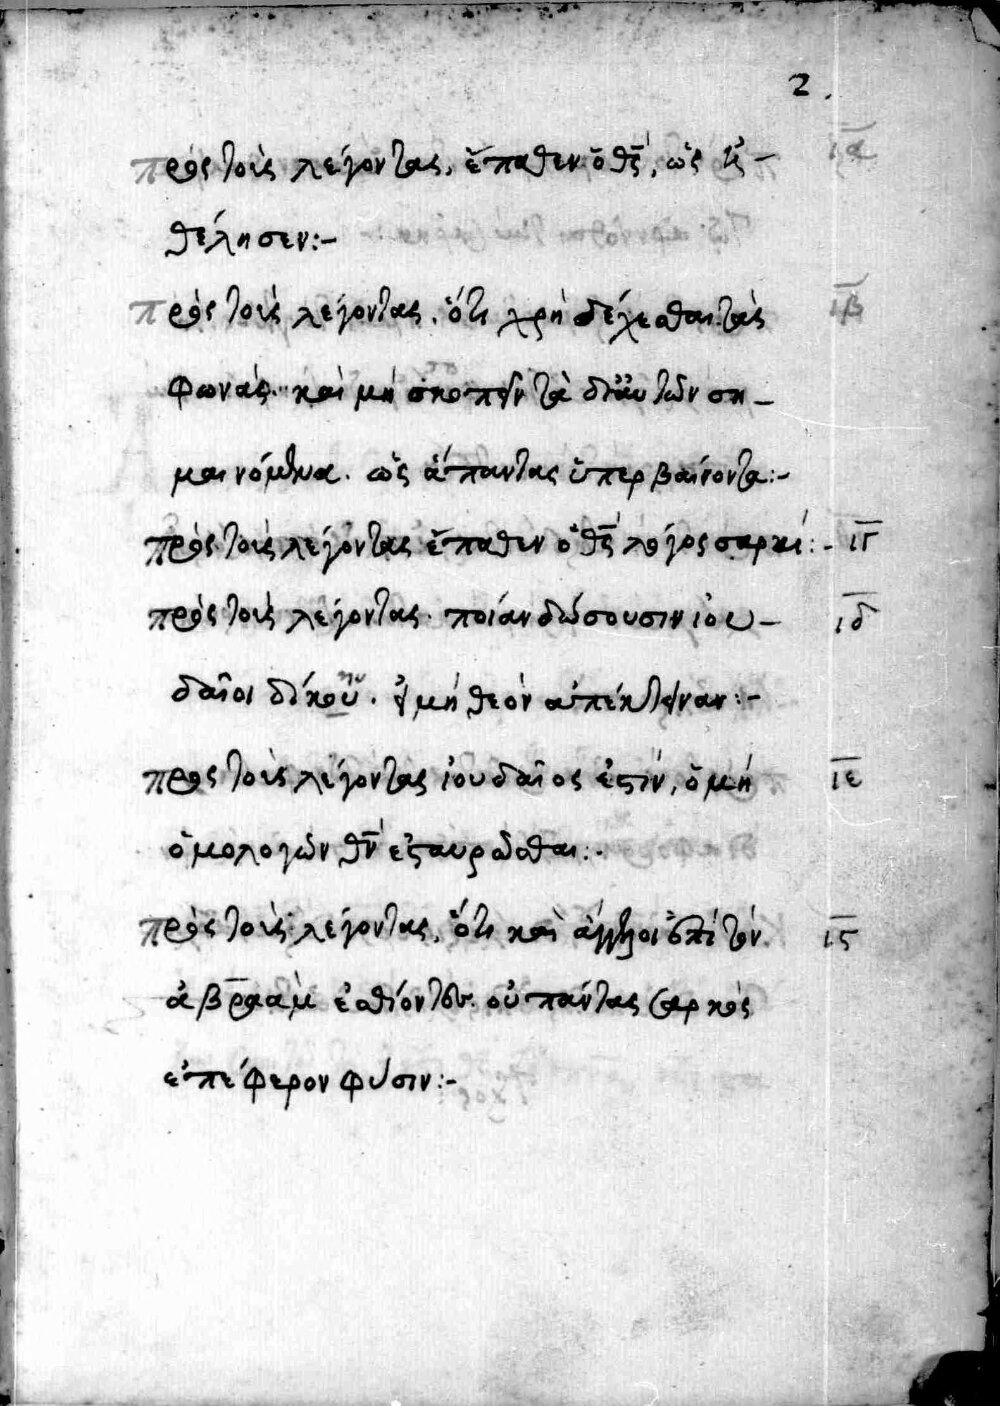 2.
πρὸς τοὺς λέγοντας, ἔπαθεν ὁ θς̅, ὡς ἠ- ια
θέλησεν:-
πρὸς τοὺς λέγοντας. ὅτι χρὴ δέχεσθαι τὰς ιβ
φωνάς. καὶ μὴ σκοπεῖν τὰ δι' αὐτῶν ση-
μαινόμενα. ὡς ἅπαντας ὑπερβαίνοντα:-
πρὸς τοὺς λέγοντας ἔπαθεν ὁ θς̅ λόγος σαρκί:- ιγ
πρὸς τοὺς λέγοντας. ποίαν δώσουσιν ἰου- ιδ
δαῖοι δίκην. εἰ μὴ θεὸν ἀπέκτειναν:-
πρὸς τοὺς λέγοντας ἰουδαῖος ἐστίν, ὁ μὴ ιε
ὁμολογῶν θν̅ ἐσταυρῶσθαι:-
πρὸς τοὺς λέγοντας, ὅτι καὶ ἄγγελοι ἐπὶ τὸν ις
ἀβραὰμ ἐσθίοντες. οὐ πάντως σαρκὸς
ἐπέφερον φύσιν:-